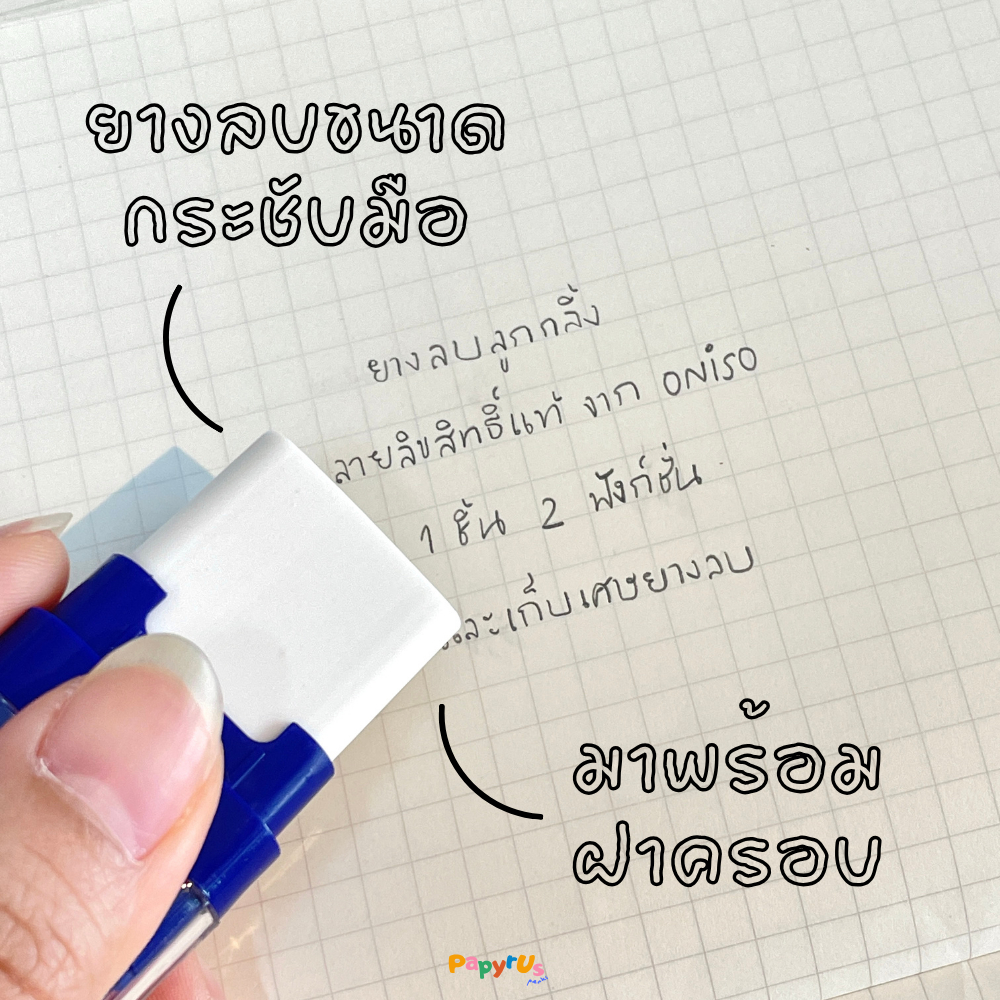 ยางลบขนาด
กระชับมือ
ยางลบลูกกลิ้ง
ลายลิขสิทธิ์แท้ จาก ONiSO
1 ชิ้น 2 ฟังก์ชั่น
และเก็บเศษยางลบ
มาพร้อม
ฝาครอบ
PapyrUs